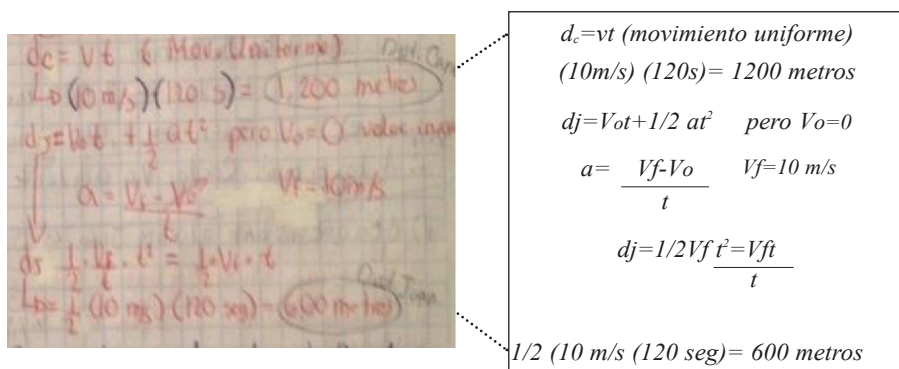 dc = Vt ( Mov. Uniforme)
(10 m/s)(120 s) = 1,200 metros
dj = Vo t + 1/2 at² pero Vo = 0 valor
a = Vf - Vo / t Vf = 10 m/s
dj 1/2 · Vf/t · t² = 1/2 · Vf · t
Dist. Juan
= 1/2 (10 m/s) (120 seg) = 600 metros
d_c=vt (movimiento uniforme)
(10m/s) (120s)= 1200 metros
dj=Vot+1/2 at² pero Vo=0
a= Vf-Vo Vf=10 m/s
t
dj=1/2Vf t²=Vft
t
1/2 (10 m/s (120 seg)= 600 metros